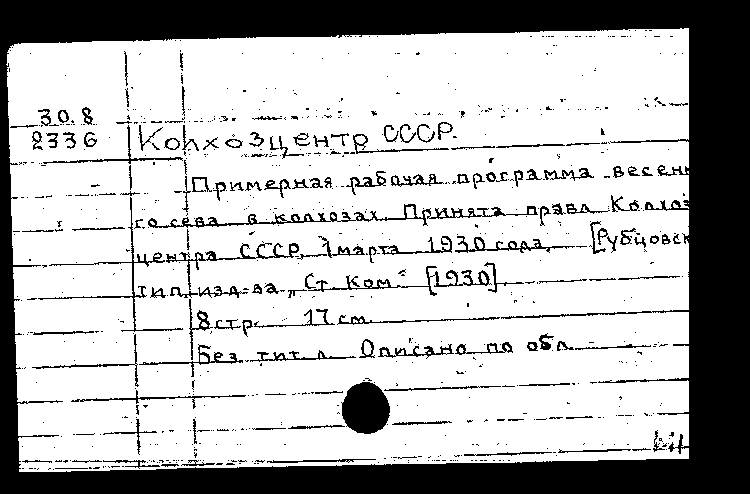 30.8
2336
Колхозцентр СССР.
Примерная рабочая программа весенн
го сева в колхозах. Принята правл Колхоз
центра СССР, 1 марта 1930 года. [Рубцовск
тип. изд-ва „Ст. Ком“ [1930].
8 стр. 17 см
Без тит. л. Описано по обл.